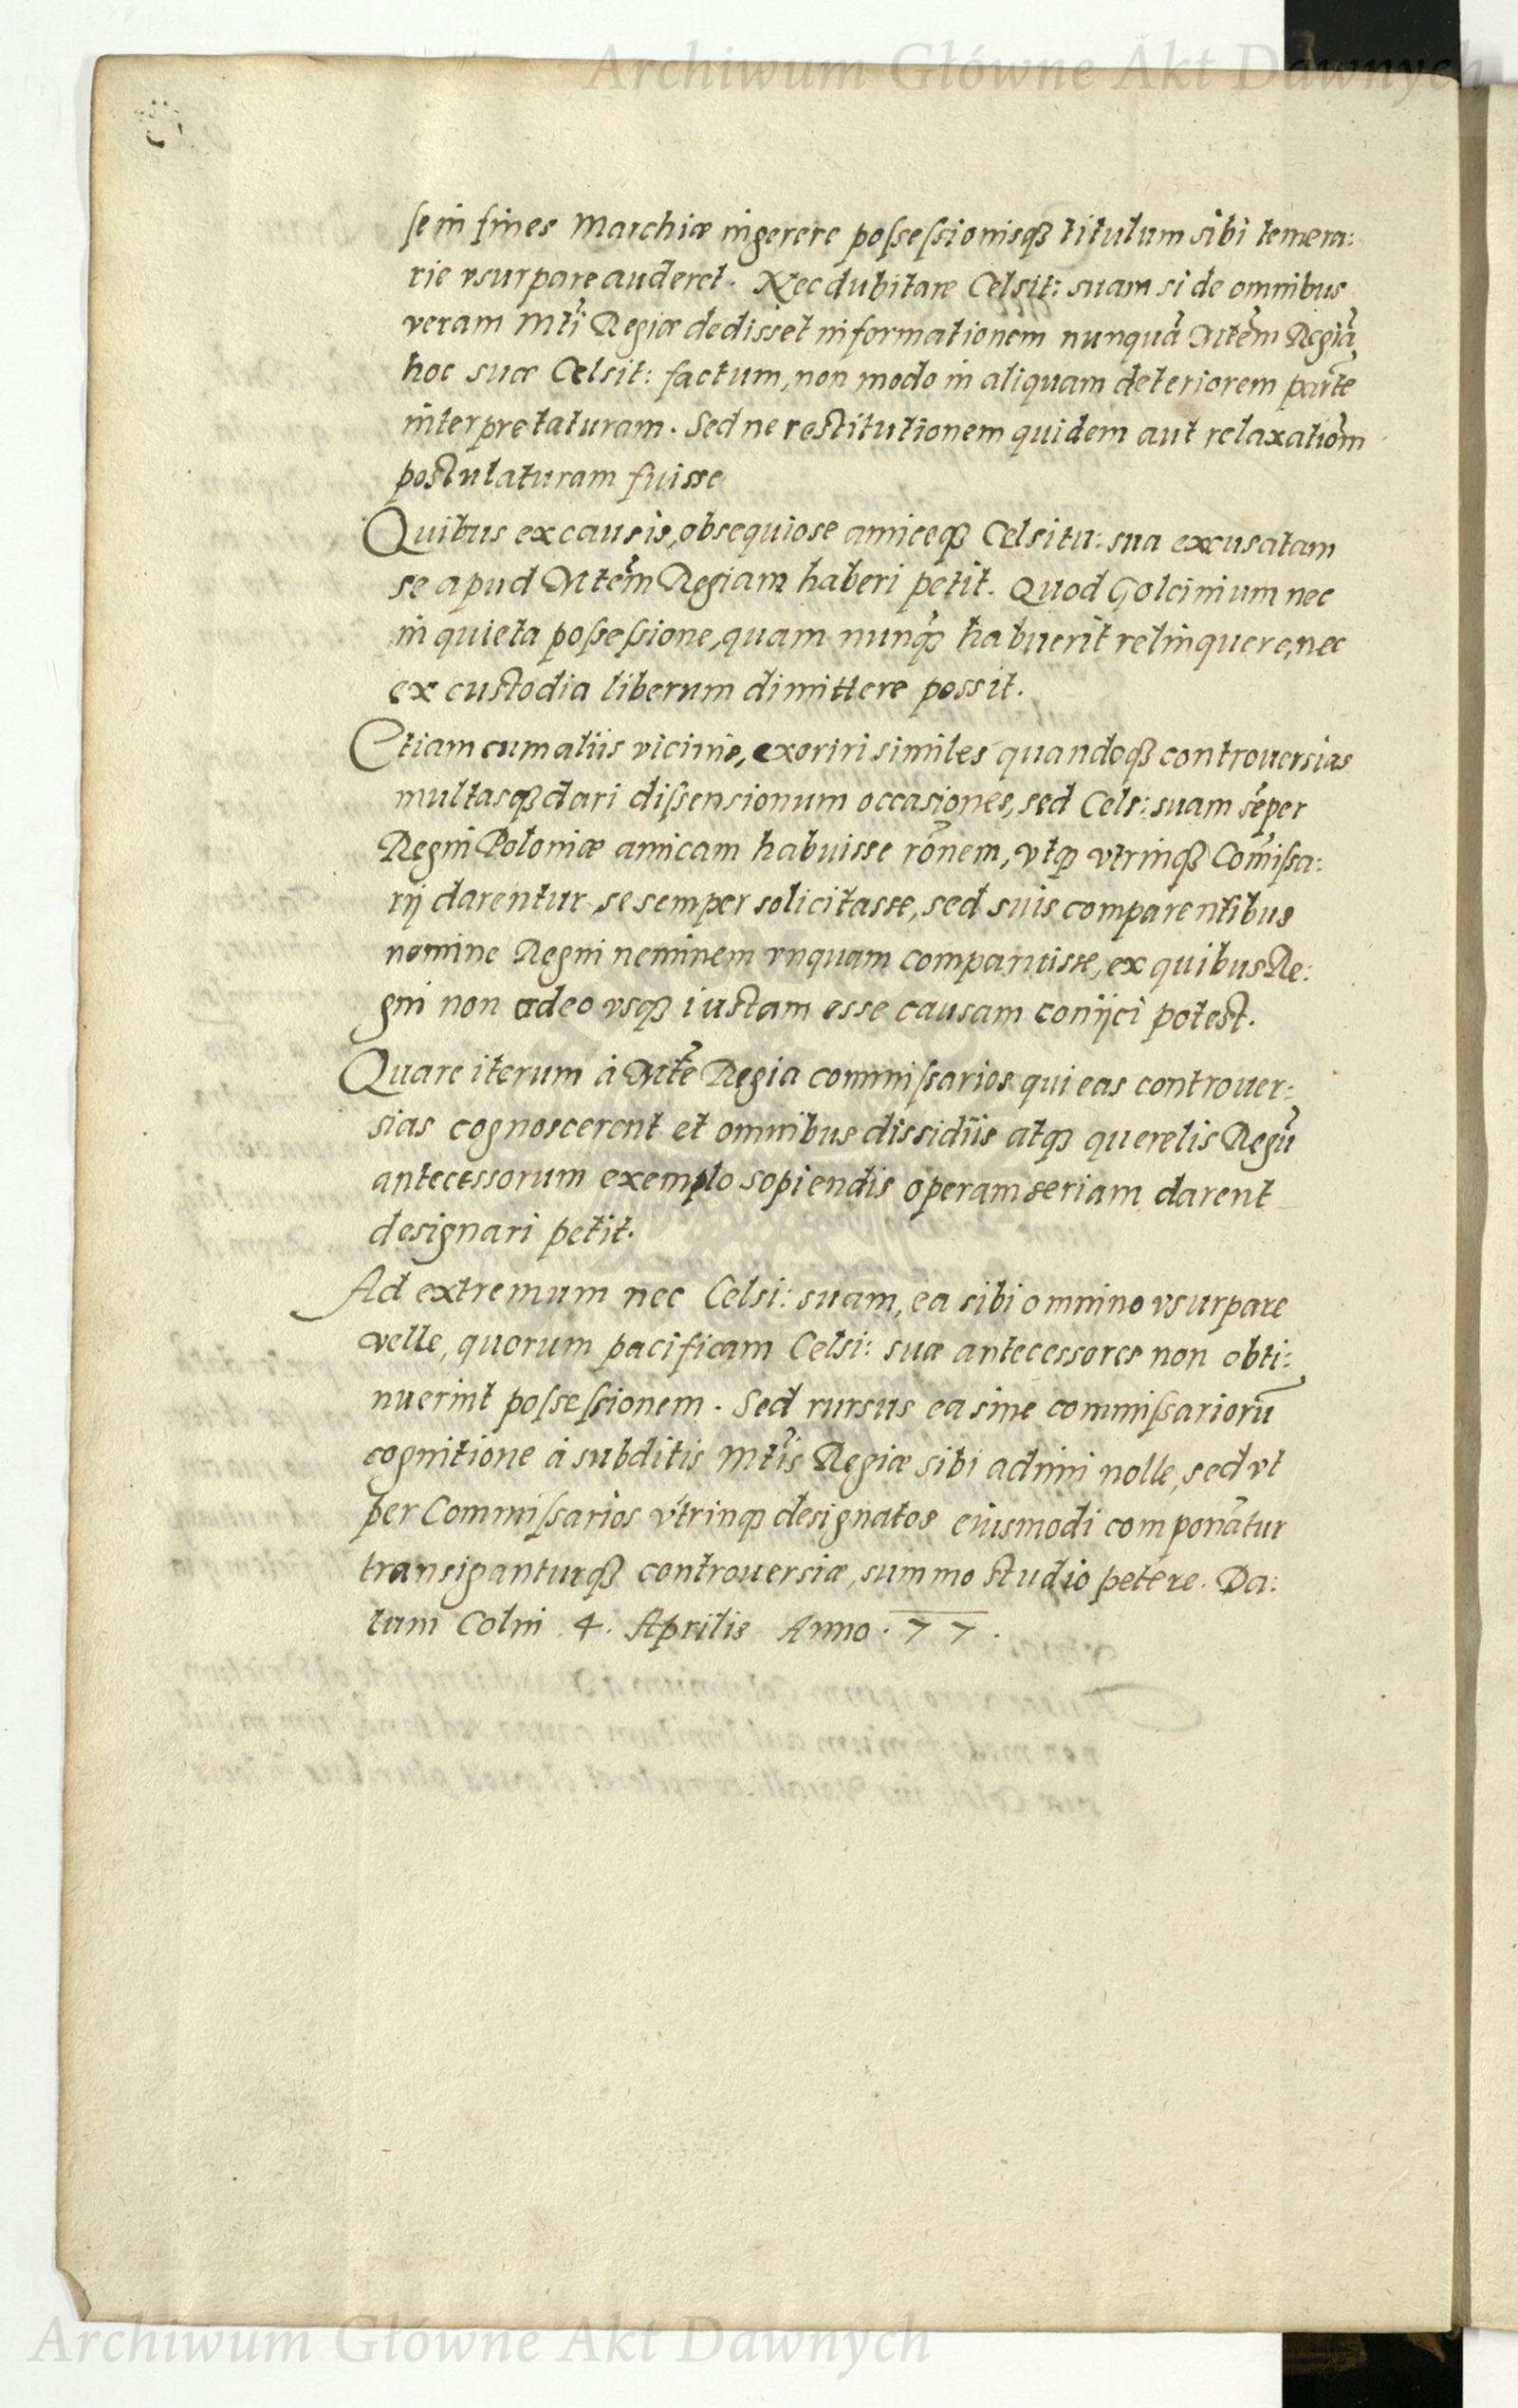 Archiwum Główne Akt Dawnych
se in fines Marchiæ ingerere possessionisq́ue titulum sibi temera:
rie vsurpare auderet. Nec dubitare Celsit: suam si de omnibus
veram Mti Regiæ dedisset informationem nunquā Mtem Regiā
hoc suæ Celsit: factum, non modo in aliquam deteriorem partē
interpretaturam. Sed ne restitutionem quidem aut relaxatiōm
postulaturam fuisse
Quibus ex causis, obsequiose amiceq́ue Celsitu: sua excusatam
se apud Mtem Regiam haberi petit. Quod Golcinium nec
in quieta possessione, quam nunq́ habuerit relinquere, nec
ex custodia liberum dimittere possit.
Etiam cum aliis vicinis, exoriri similes quandoq́ue controuersias
multasq́ue dari dissensionum occasiones, sed Cels: suam sēper
Regni Poloniæ amicam habuisse rōnem, vtq́ue vtrinq́ue Com̄issa:
rij darentur se semper solicitasse, sed suis comparentibus
nomine Regni neminem vnquam comparuisse, ex quibus Re:
gni non adeo vsq́ue iustam esse causam conijci potest.
Quare iterum à Mte Regia commissarios qui eas controuer:
sias cognoscerent et omnibus dissidiis atq́ue querelis Regū
antecessorum exemplo sopiendis operam seriam darent
designari petit.
Ad extremum nec Celsi: suam, ea sibi omnino vsurpare
velle, quorum pacificam Celsi: suæ antecessores non obti:
nuerint possessionem. Sed rursus ea sine commissariorū
cognitione à subditis Mtis Regiæ sibi adimi nolle, sed vt
per Commissarios vtrinq́ue designatos eiusmodi componātur
transiganturq́ue controuersiæ, summo studio petere. Da:
tum Colni 4. Aprilis Anno. 77.
Archiwum Główne Akt Dawnych